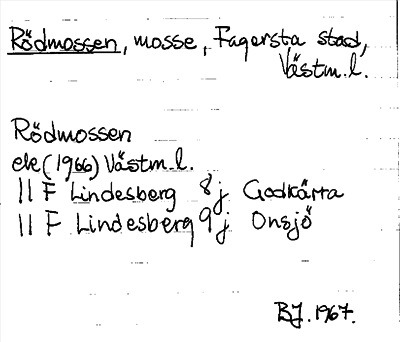 Rödmossen, mosse, Fagersta stad,
Västm.l.
Rödmossen
ek (1966) Västm.l.
11 F Lindesberg 8j Godkärra
11 F Lindesberg 9j Onsjö
BJ. 1967.